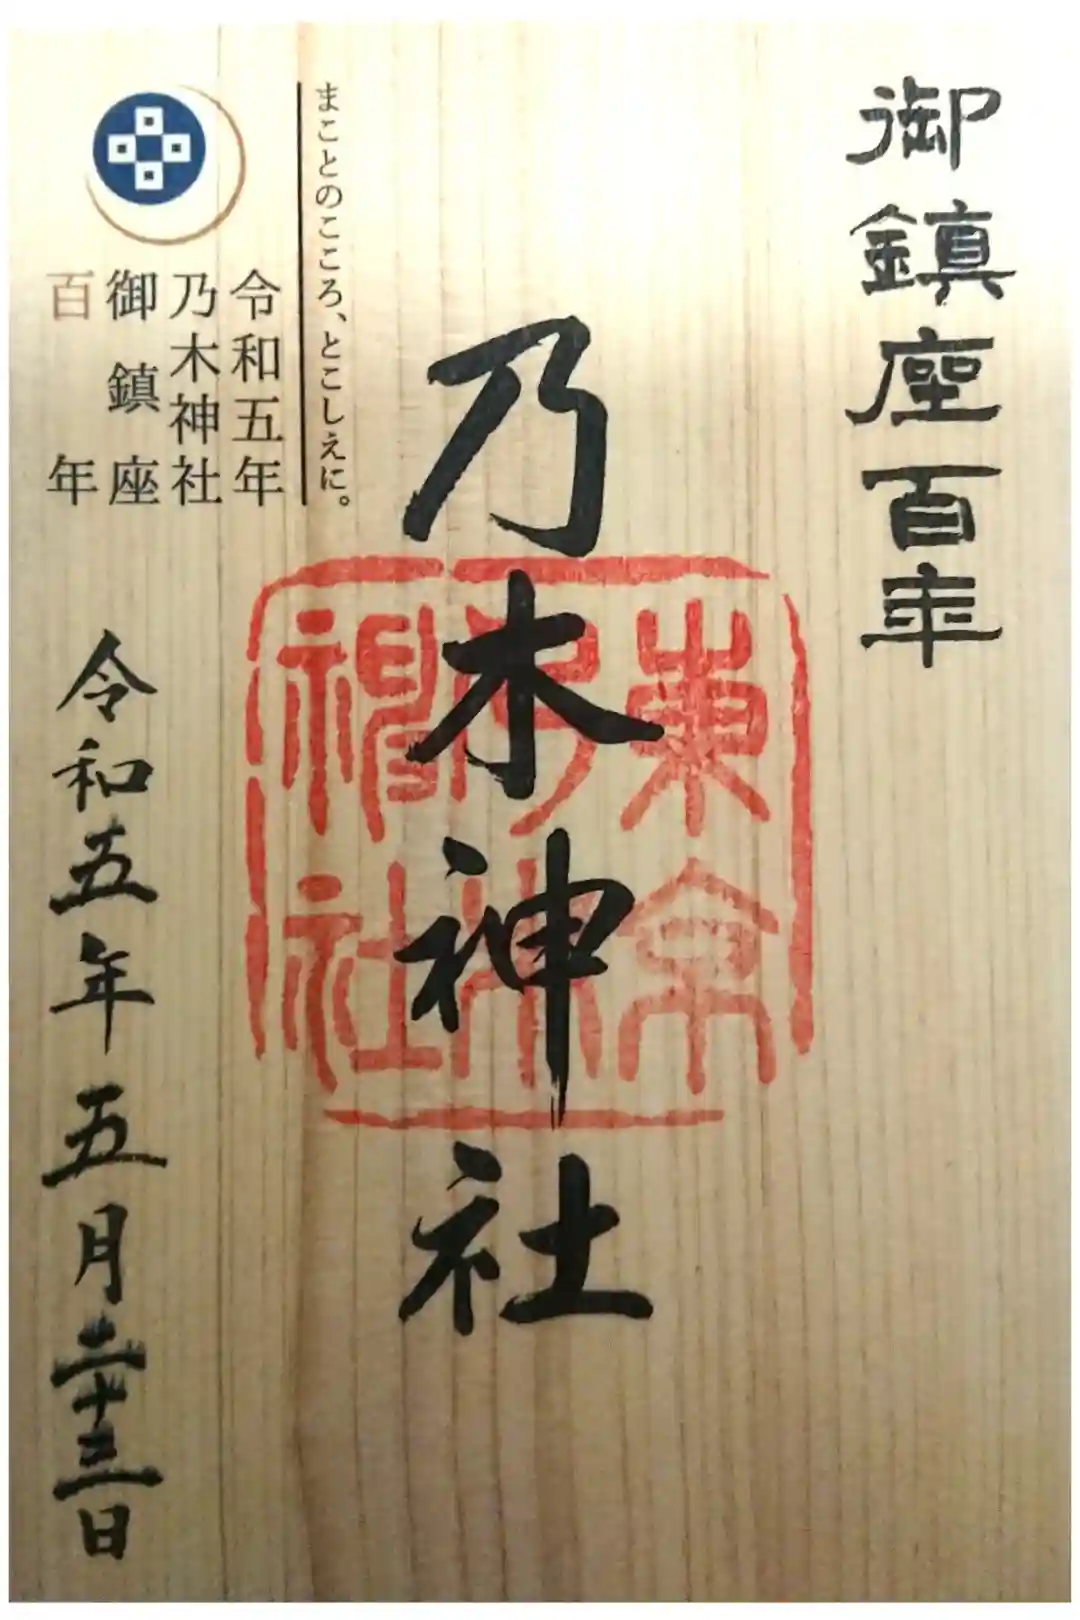 御鎮座百年
乃木神社
東京
乃木
神社
まことのこころ、とこしえに。
令和五年
乃木神社
御鎮座
百年
令和五年五月二十三日